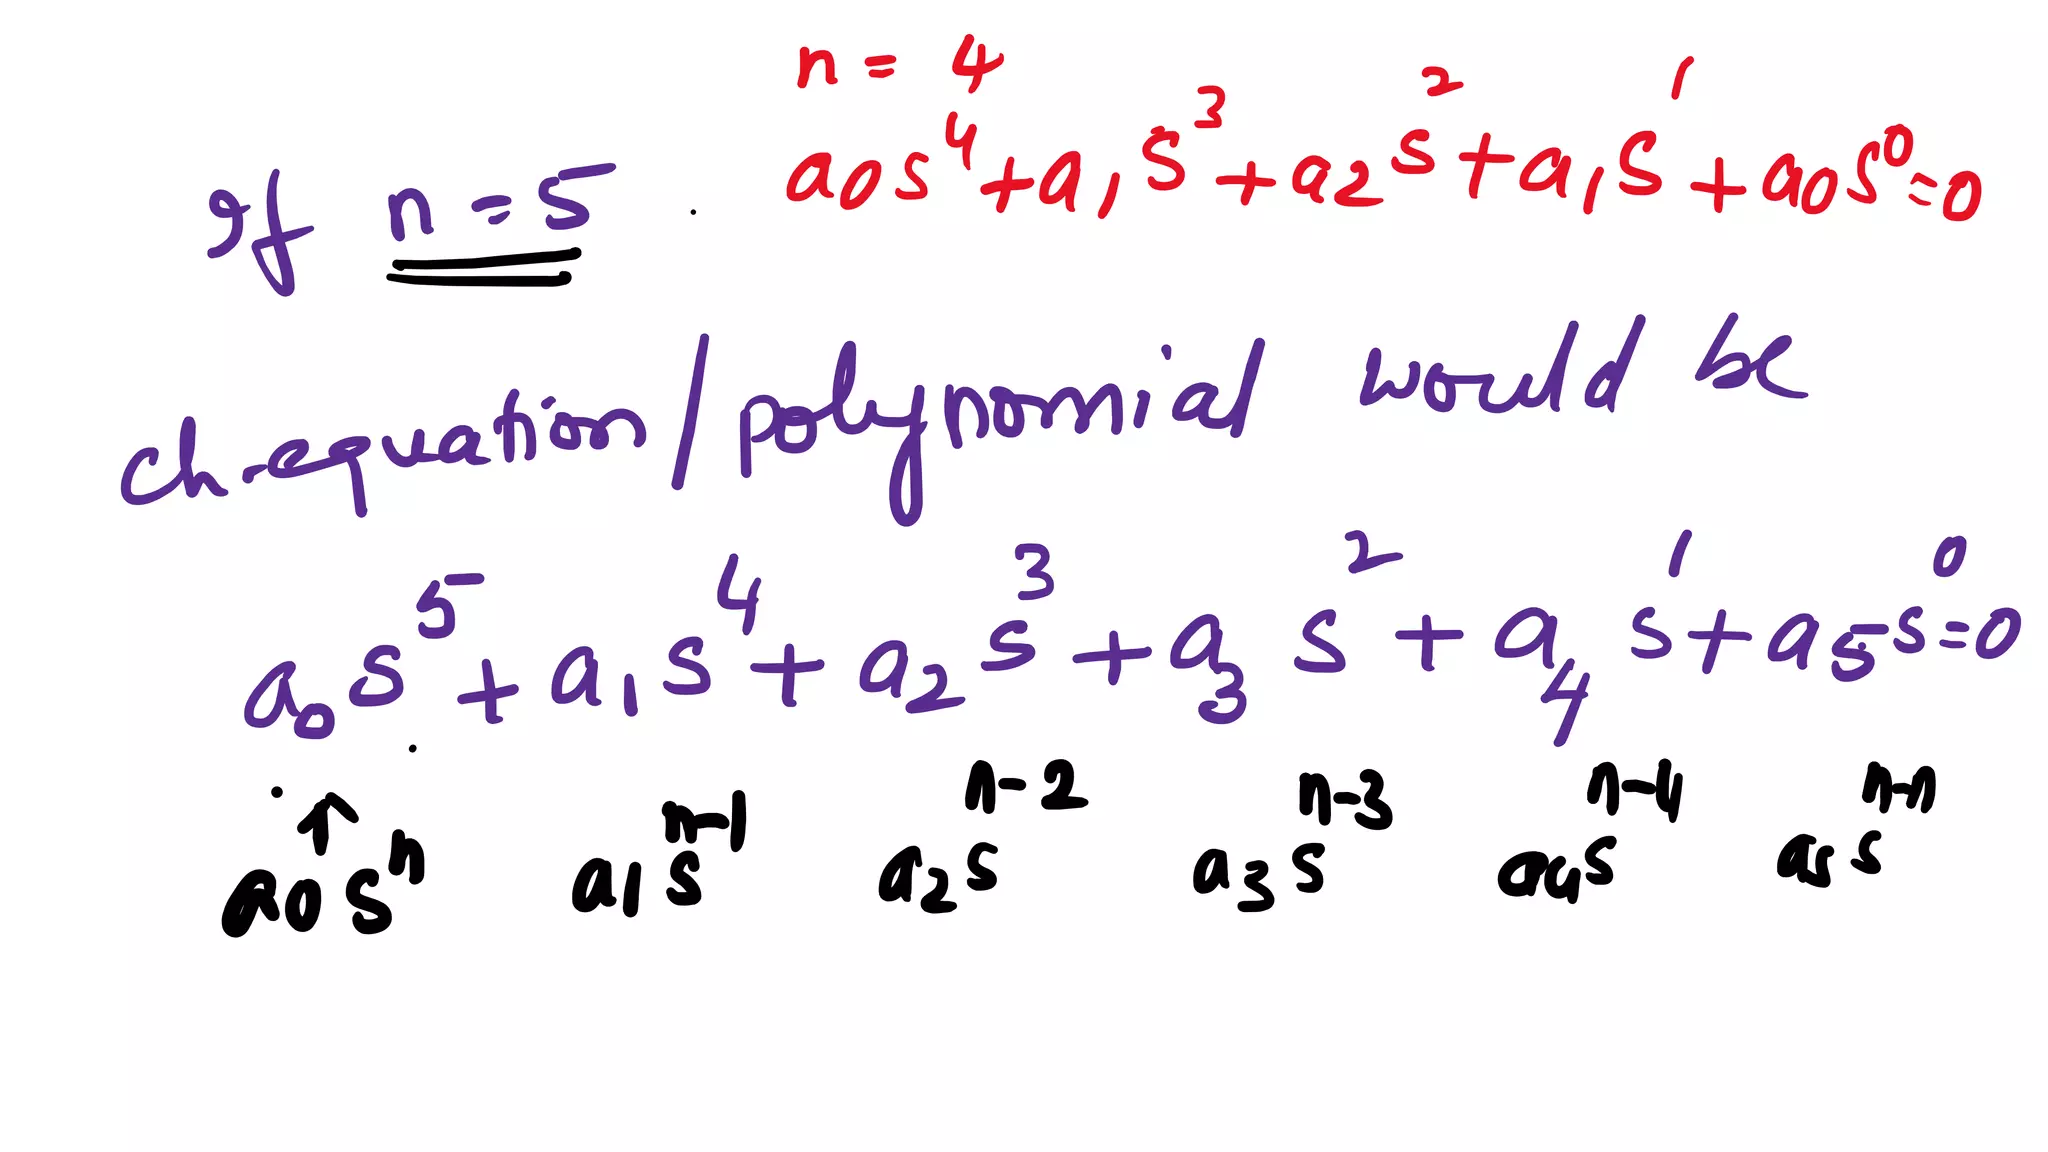 n = 4
a0s⁴+a1s³+a2s²+a1s¹+a0s⁰=0
If n=5
ch-equation/polynomial would be
a₀s⁵+a₁s⁴+a₂s³+a₃s²+a₄s¹+a₅s⁰=0
↑
a0sⁿ a1sⁿ⁻¹ a2sⁿ⁻² a3sⁿ⁻³ a4sⁿ⁻⁴ a5sⁿ⁻ⁿ